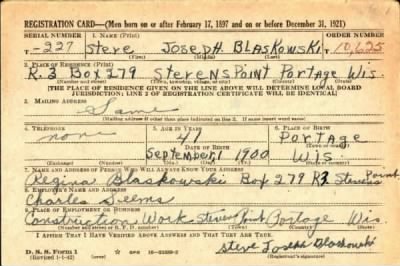 REGISTRATION CARD—(Men born on or after February 17, 1897 and on or before December 31, 1921)
SERIAL NUMBER 1. NAME (Print) ORDER NUMBER
T-227 Steve Joseph Blaskowski 10,625
(First) (Middle) (Last)
2. PLACE OF RESIDENCE (Print)
R.3 Box 279 Stevens Point Portage Wis.
(Number and street) (Town, township, village, or city) (County) (State)
[THE PLACE OF RESIDENCE GIVEN ON THE LINE ABOVE WILL DETERMINE LOCAL BOARD
JURISDICTION; LINE 2 OF REGISTRATION CERTIFICATE WILL BE IDENTICAL]
3. MAILING ADDRESS
Same
(Mailing address if other than place indicated on line 2. If same insert word same)
4. TELEPHONE 5. AGE IN YEARS 6. PLACE OF BIRTH
none 41 Portage
DATE OF BIRTH (Town or county)
September 1 1900 Wis.
(Exchange) (Number) (Mo.) (Day) (Yr.) (State or country)
7. NAME AND ADDRESS OF PERSON WHO WILL ALWAYS KNOW YOUR ADDRESS
Regina Blaskowski Box 279 R3 Stevens Point
8. EMPLOYER'S NAME AND ADDRESS
Charles Selms
9. PLACE OF EMPLOYMENT OR BUSINESS
Construction Work Stevens Point Portage Wis
(Number and street or R. F. D. number) (Town) (County) (State)
I AFFIRM THAT I HAVE VERIFIED ABOVE ANSWERS AND THAT THEY ARE TRUE.
D. S. S. Form 1
(Revised 1-1-42) GPO Steve Joseph Blaskowski